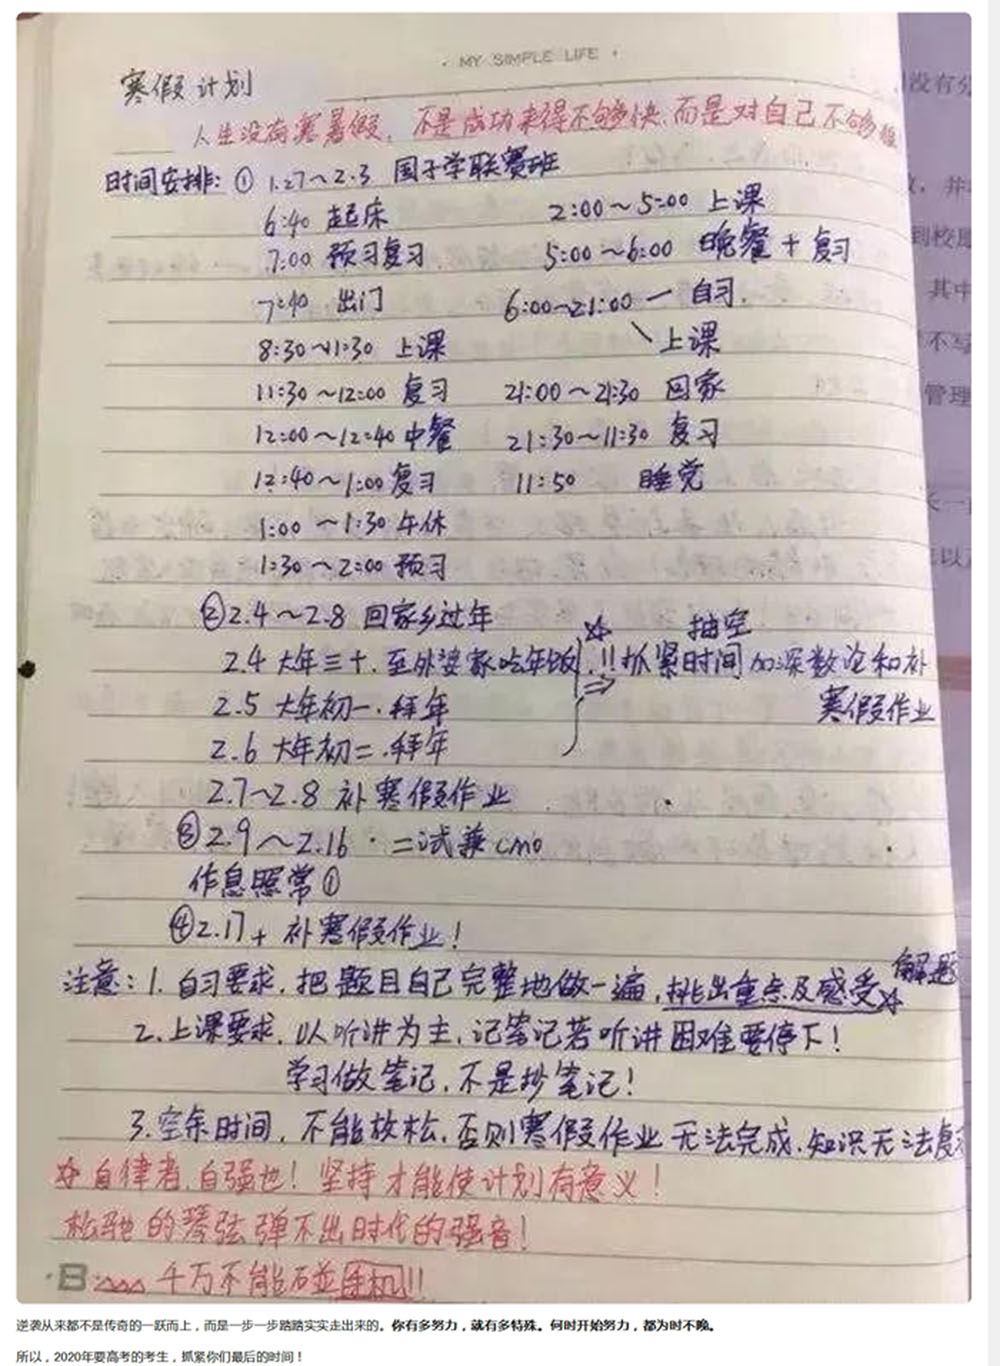 · MY SIMPLE LIFE ·
寒假计划
人生没有寒暑假，不是成功来得不够快，而是对自己不够狠
时间安排：① 1.27～2.3 国子学联赛班
6:40 起床
7:00 预习复习
7:40 出门
8:30～11:30 上课
11:30～12:00 复习
12:00～12:40 中餐
12:40～1:00 复习
1:00～1:30 午休
1:30～2:00 预习
2:00～5:00 上课
5:00～6:00 晚餐+复习
6:00～21:00 — 自习.
\ 上课
21:00～21:30 回家
21:30～11:30 复习
11:50 睡觉
②2.4～2.8 回家乡过年
2.4 大年三十.至外婆家吃年饭
2.5 大年初一.拜年
2.6 大年初二.拜年
☆ 抽空
!!抓紧时间加深数论和补
寒假作业
2.7～2.8 补寒假作业
③2.9～2.16·二试兼cmo
作息照常①
④2.17+ 补寒假作业！
注意：1.自习要求.把题目自己完整地做一遍,挑出重点及感受☆解题
2.上课要求.以听讲为主,记笔记若听讲困难要停下！
学习做笔记,不是抄笔记！
3.空余时间,不能放松,否则寒假作业无法完成.知识无法复
☆自律者,自强也！坚持才能使计划有意义！
松驰的琴弦弹不出时代的强音！
千万不能碰手机!!
没有分
并
到校
其中
不写
管理
逆袭从来都不是传奇的一跃而上，而是一步一步踏踏实实走出来的。你有多努力，就有多特殊。何时开始努力，都为时不晚。
所以，2020年要高考的考生，抓紧你们最后的时间！